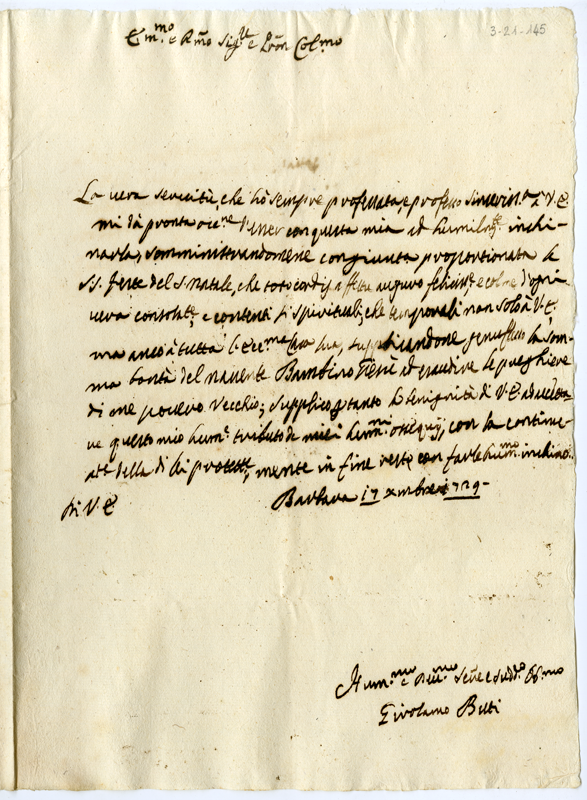 3-21-145
Em.mo e R.mo Sig.re e Pron Col.mo
La vera servitù, che hò sempre professata, e professo sincerissm.te à V.E.
mi dà pronta occ.ne d'esser con questa mia ad humilm.te inchi-
narla, somministrandomene congiunta proportionata le
S.S. feste del S. Natale, che toto cordis affectu auguro feliciss.e e colme d'ogni
vera consolat.e, e contenti sì spirituali, che temporali non solo à V.E,
ma anco à tutta l'Ecc.ma Casa sua, supplicandone genuflesso la som-
ma bontà del nascente Bambino Giesù ad esaudire le preghiere
di me povero Vecchio; supplico p tanto la benignità di V.E. ad accetta
re questo mio hum.e tributo de miei hum.mi ossequij, con la continu-
at.e della di lei protett.e, mentre in fine resto con farle hum.mo inchino.
Di V.E.
Barbara 17 Xmbre 1729-
Hum.mo e Dev.mo Ser.e e Sudd.o Ob.mo
Girolamo Buti